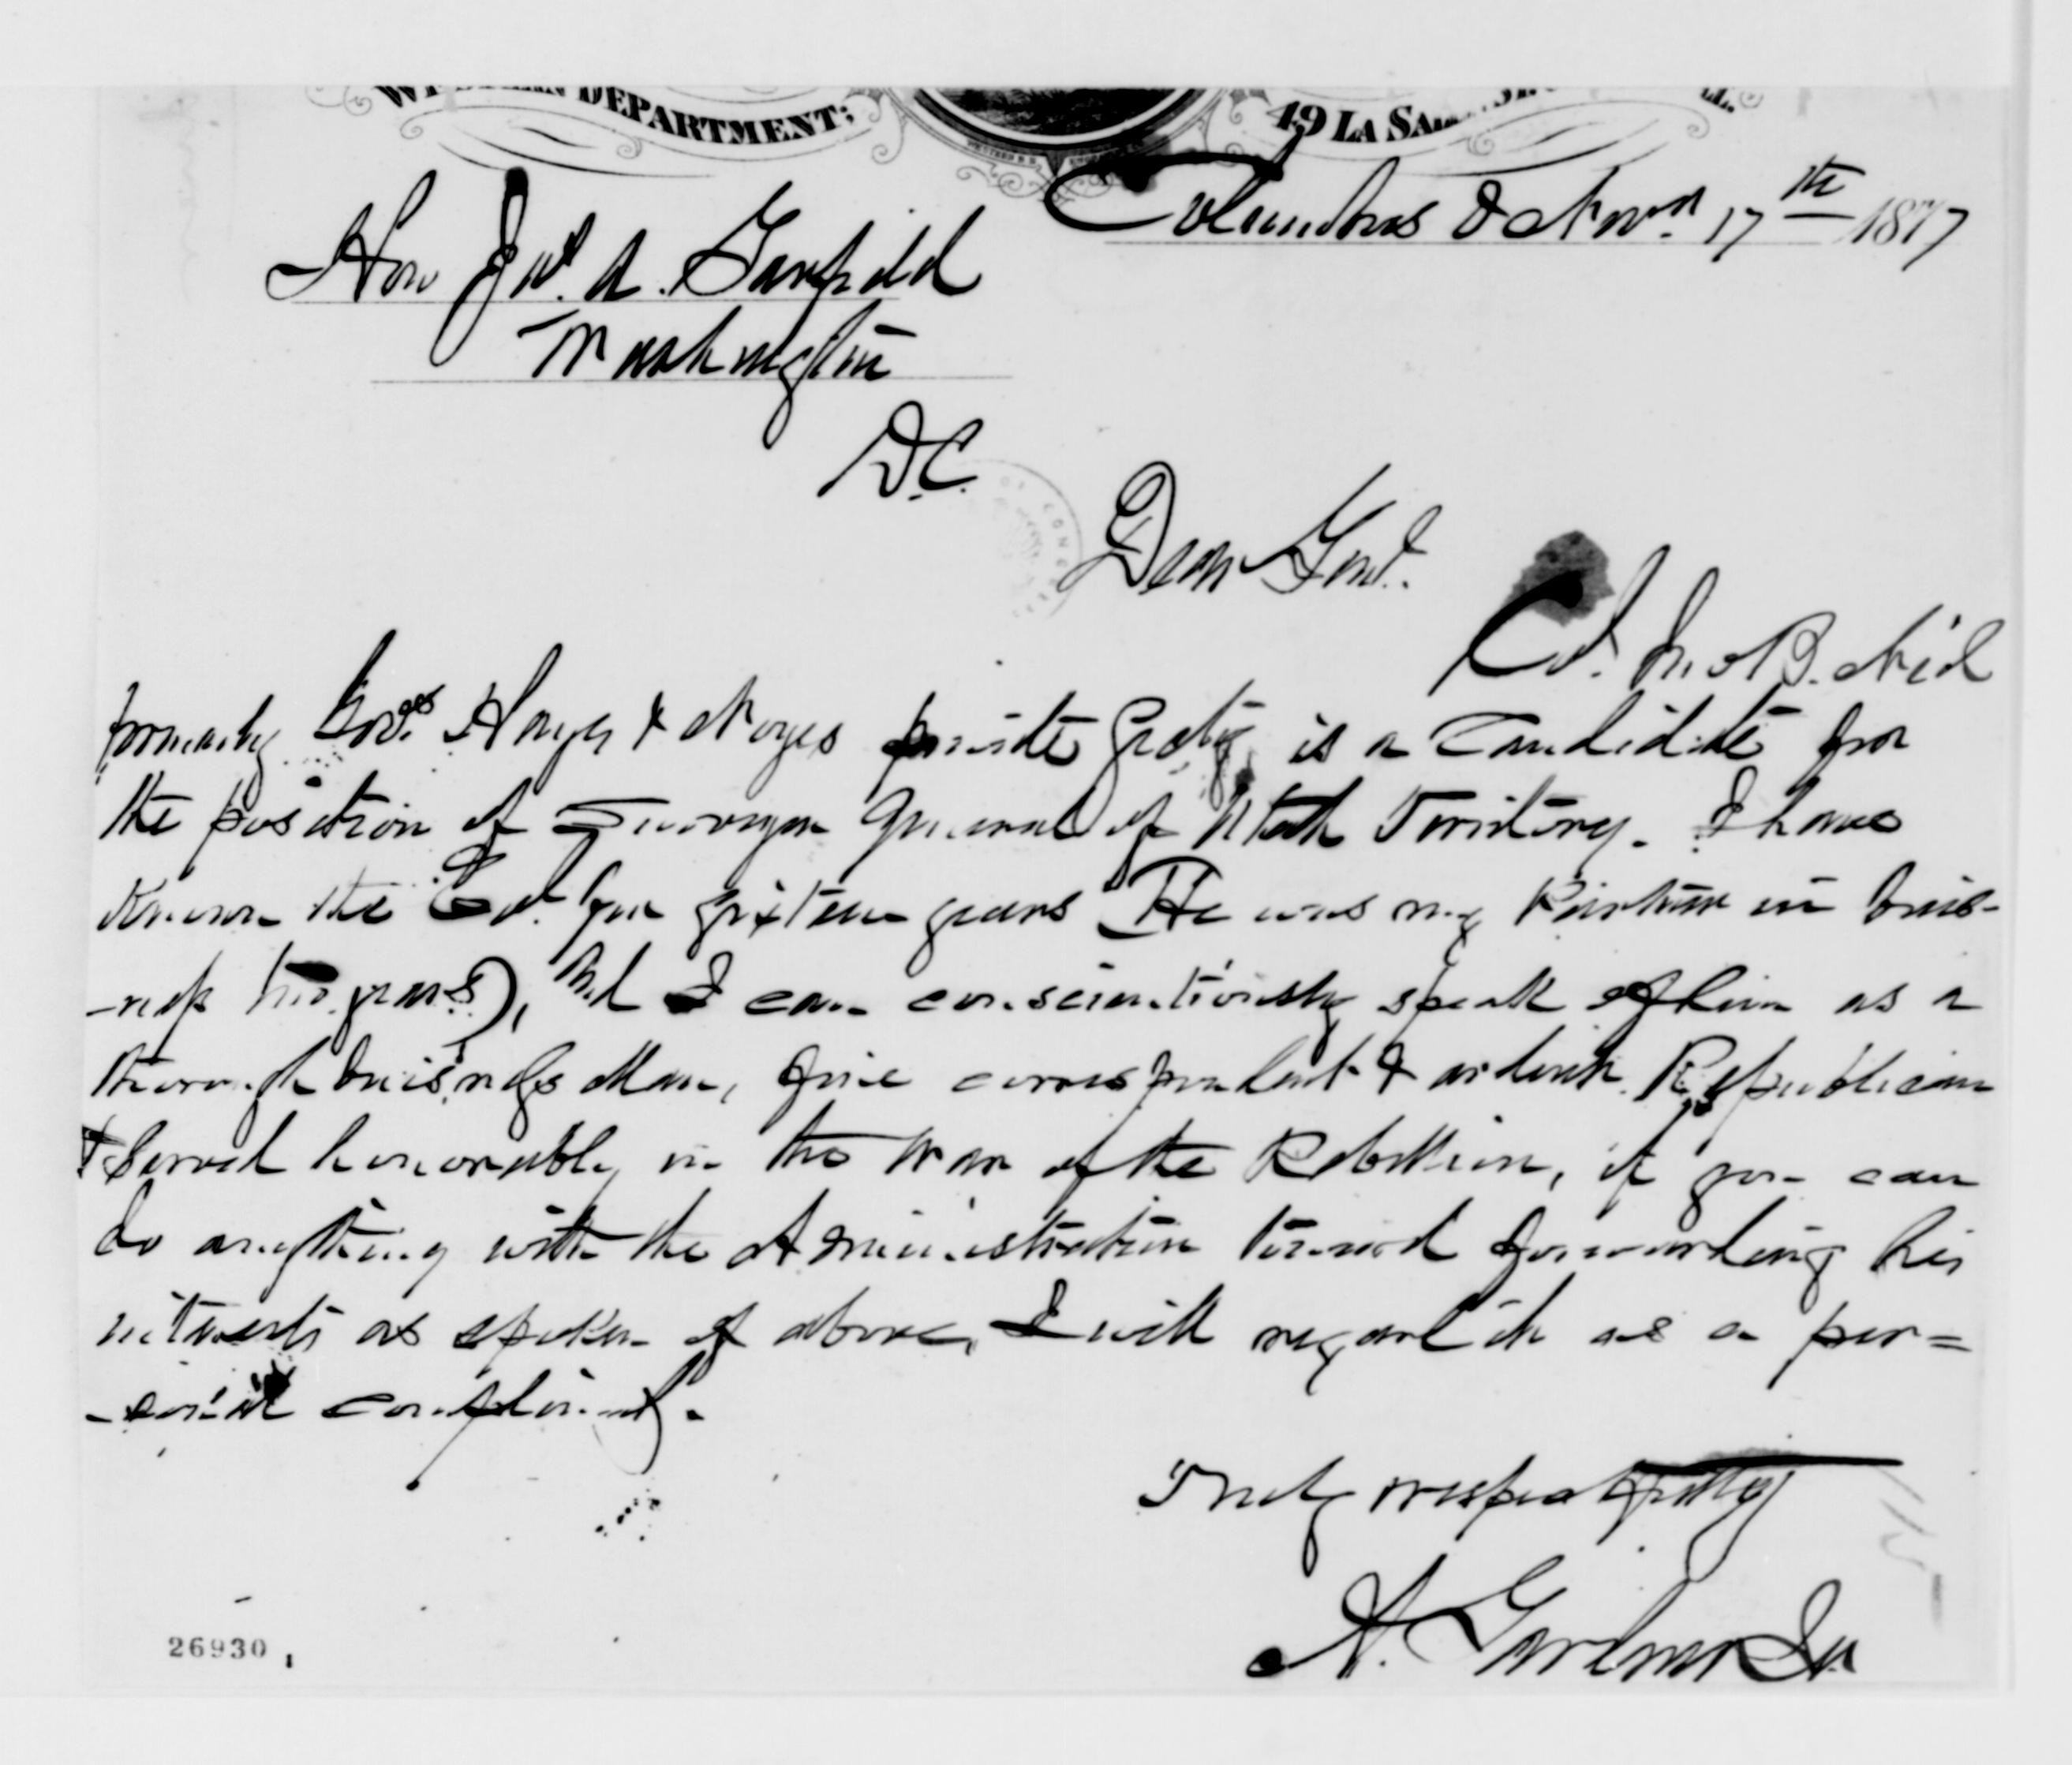 WESTERN DEPARTMENT;
19 LA SALLE ST.
Columbus O Novr. 17th 1877
Hon Jas. A. Garfield
Washington
D.C.
Dear Genl.
Col. Jno B. Neil
formerly Govs. Hayes & Noyes private Secty, is a Candidate for
the position of Surveyor General of Utah Territory. I have
Known the Col. for sixteen years (He was my Partner in buis-
-ness two years), and I can conscientiously speak of him as a
thorough buisness Man, fine correspondent & ardent Republican
& served honorably in the War of the Rebellion, if you can
do anything with the Administration toward forwarding his
interests as spoken of above, I will regard it as a per=
-sonal compliment.
Truly respectfully
A. Gardner Jr
26930